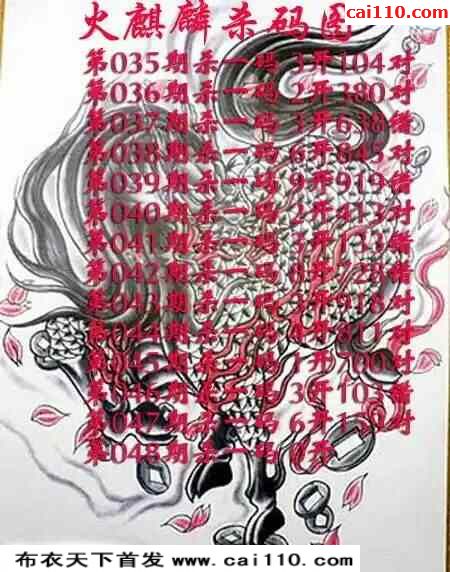 cai110.com
火麒麟杀码图
第035期杀一码 3开104对
第036期杀一码 2开380对
第037期杀一码 3开638错
第038期杀一码 6开845对
第039期杀一码 9开919错
第040期杀一码 2开413对
第041期杀一码 3开133错
第042期杀一码 8开728错
第043期杀一码 3开918对
第044期杀一码 开811对
第045期杀一码 1开700对
第046期杀一码 3开103错
第047期杀一码 6开 对
第048期杀一码 开
布衣天下首发 www.cai110.com